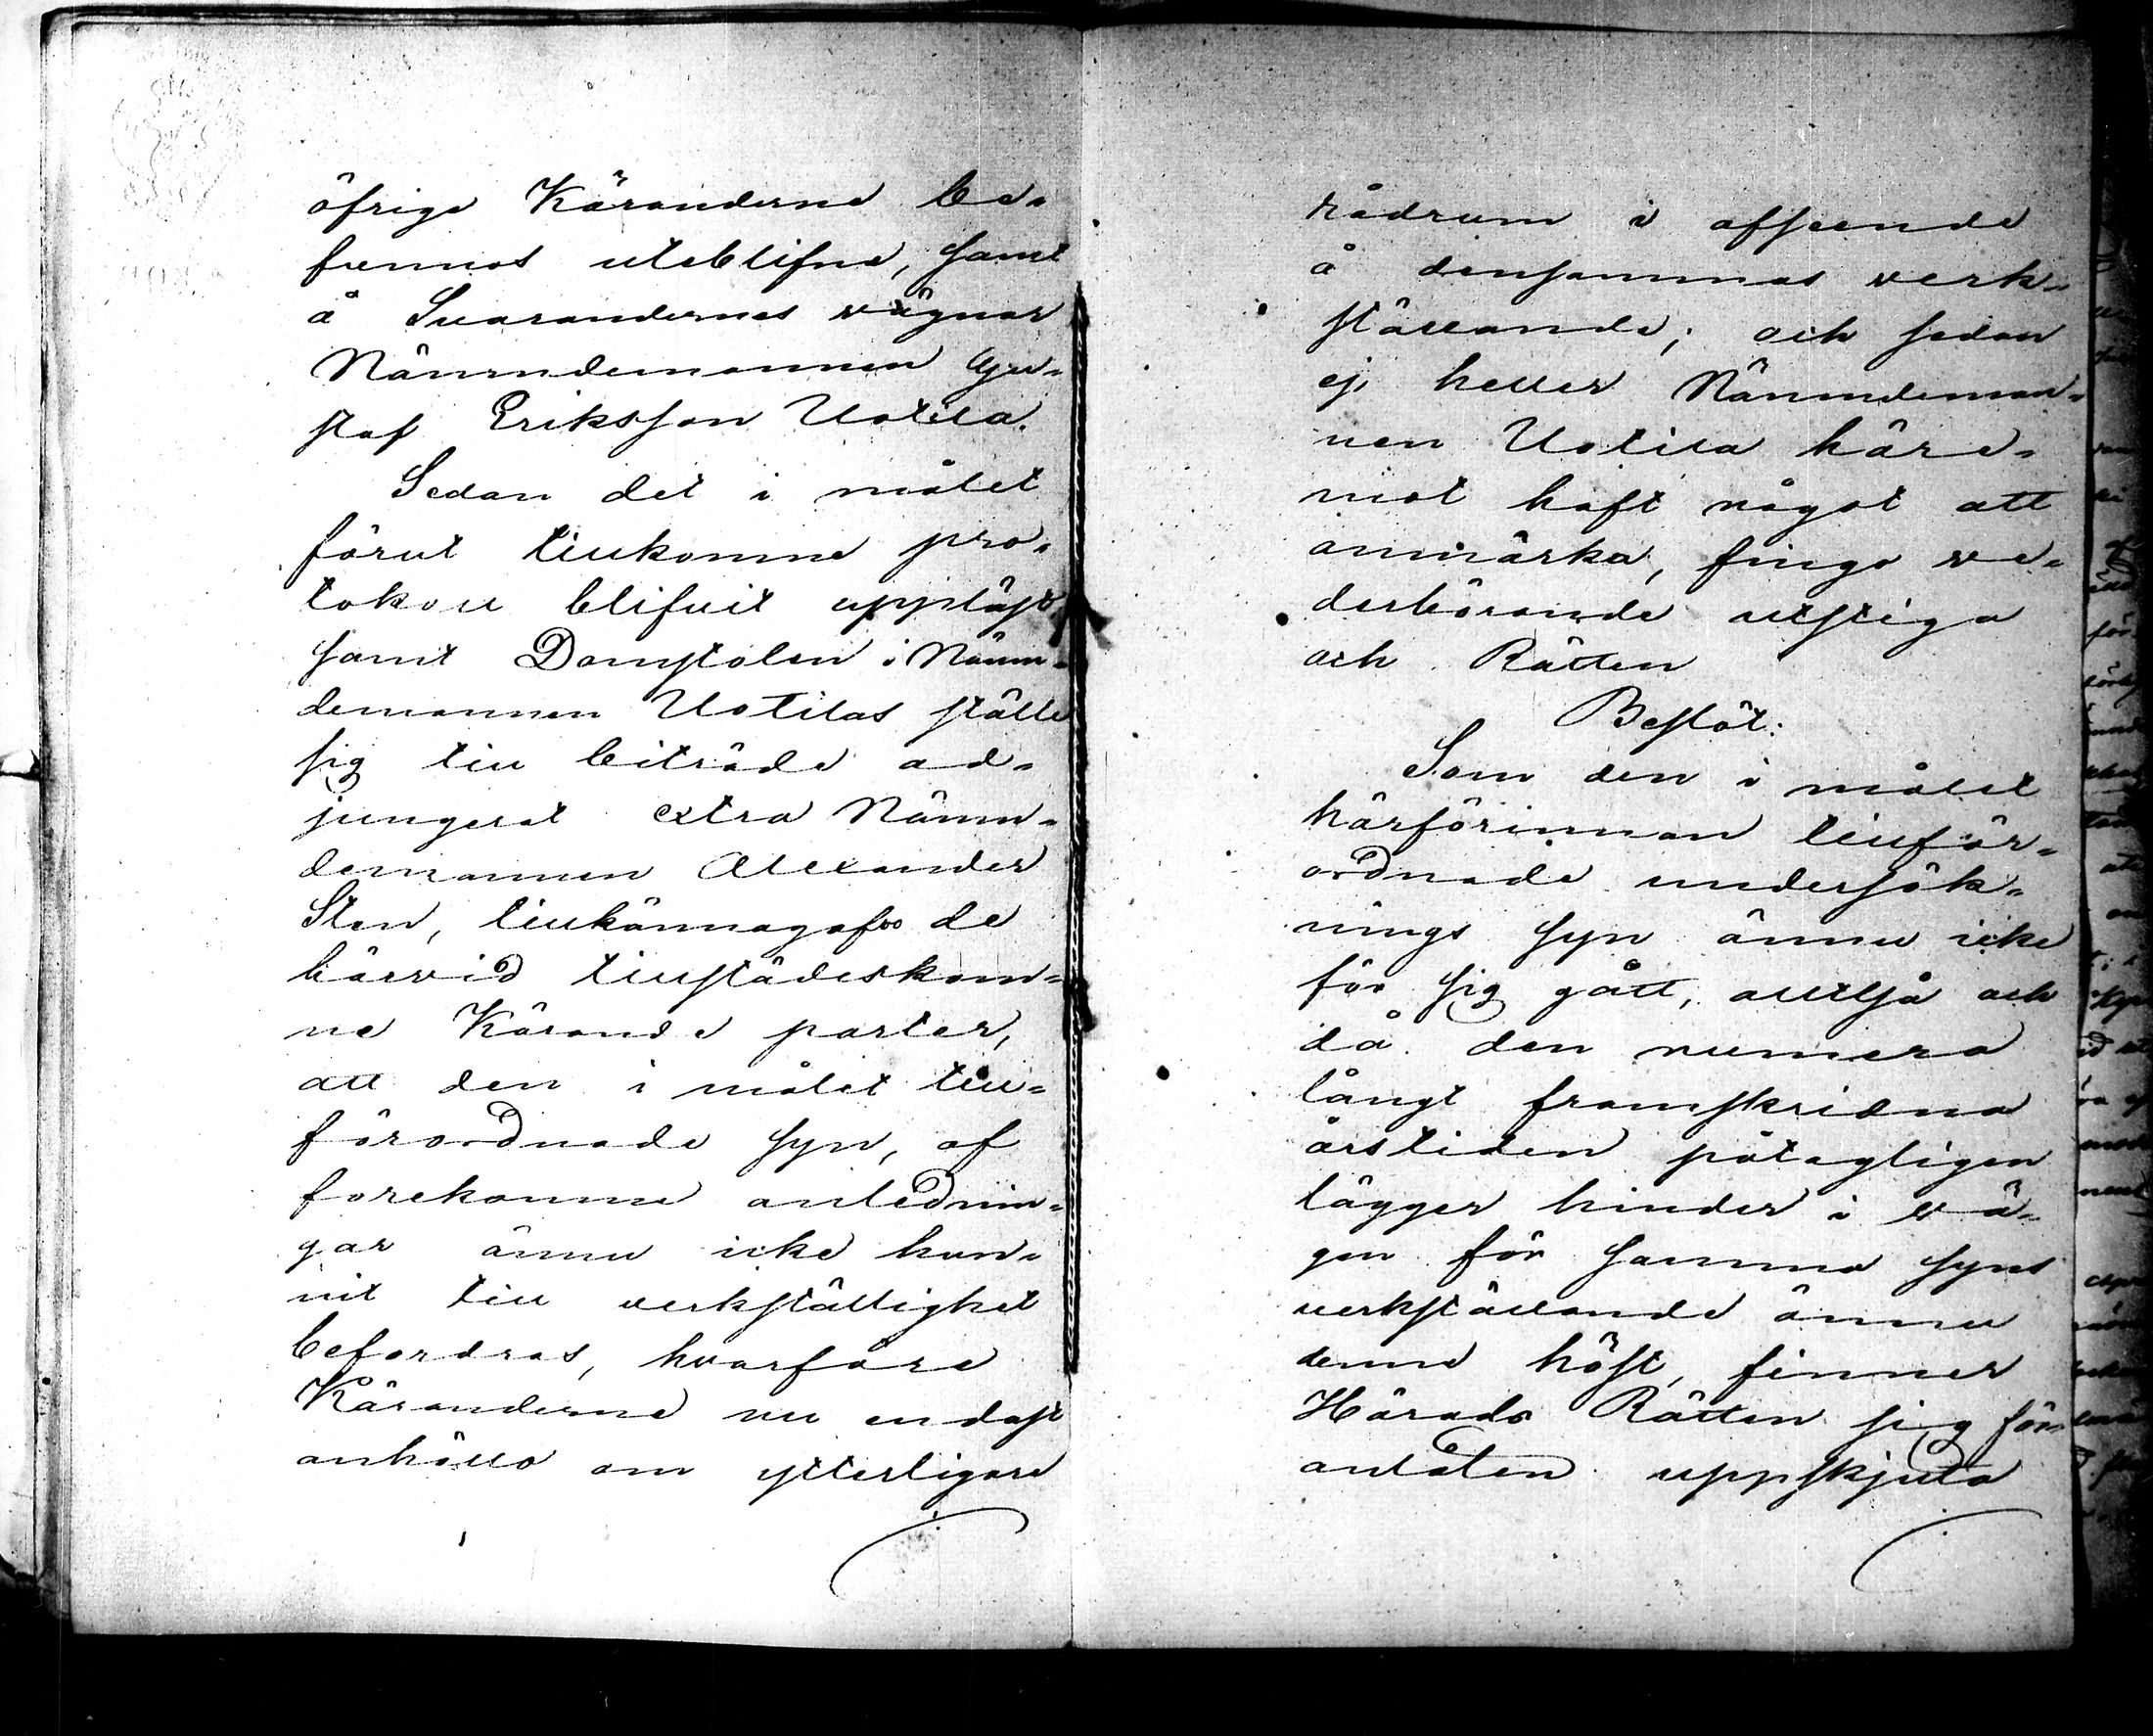 öfrige Käranderne be-
funnos uteblifne, samt
å Svarandernes vägnar
Nämndemannen Gu-
staf Eriksson Uotila.
Sedan det i målet
förut tillkomne pro-
tokoll blifvit uppläst,
samt Domstolen i Näm-
demannen Uotilas ställe
sig till biträde ad-
jungerat extra Nämn-
demannen Alexander
Sten, tillkännagafvo de
härvid tillstädeskom-
ne Kärande parter,
att den i målet till-
förordnade syn, af
forekomne anlednin-
gar ännu icke hun-
nit till verkställighet
befordras, hvarföre
Käranderne nu endast
anhöllo om ytterligare
rådrum i afseende
å densammas verk-
ställande; och sedan
ej heller Nämndeman-
nen Uotila häre-
mot haft något att
anmärka, fingo ve-
derbörande utstiga
och Rätten
Beslöt:
Som den i målet
härförinnan tillför-
ordnade undersök-
nings syn ännu icke
för sig gått, alltså och
då den numera
långt framskridna
årstiden påtagligen
lägger hinder i vä-
gen för samma syns
verkställande ännu
denne höst, finner
Härads Rätten sig för-
anlåten uppskjuta